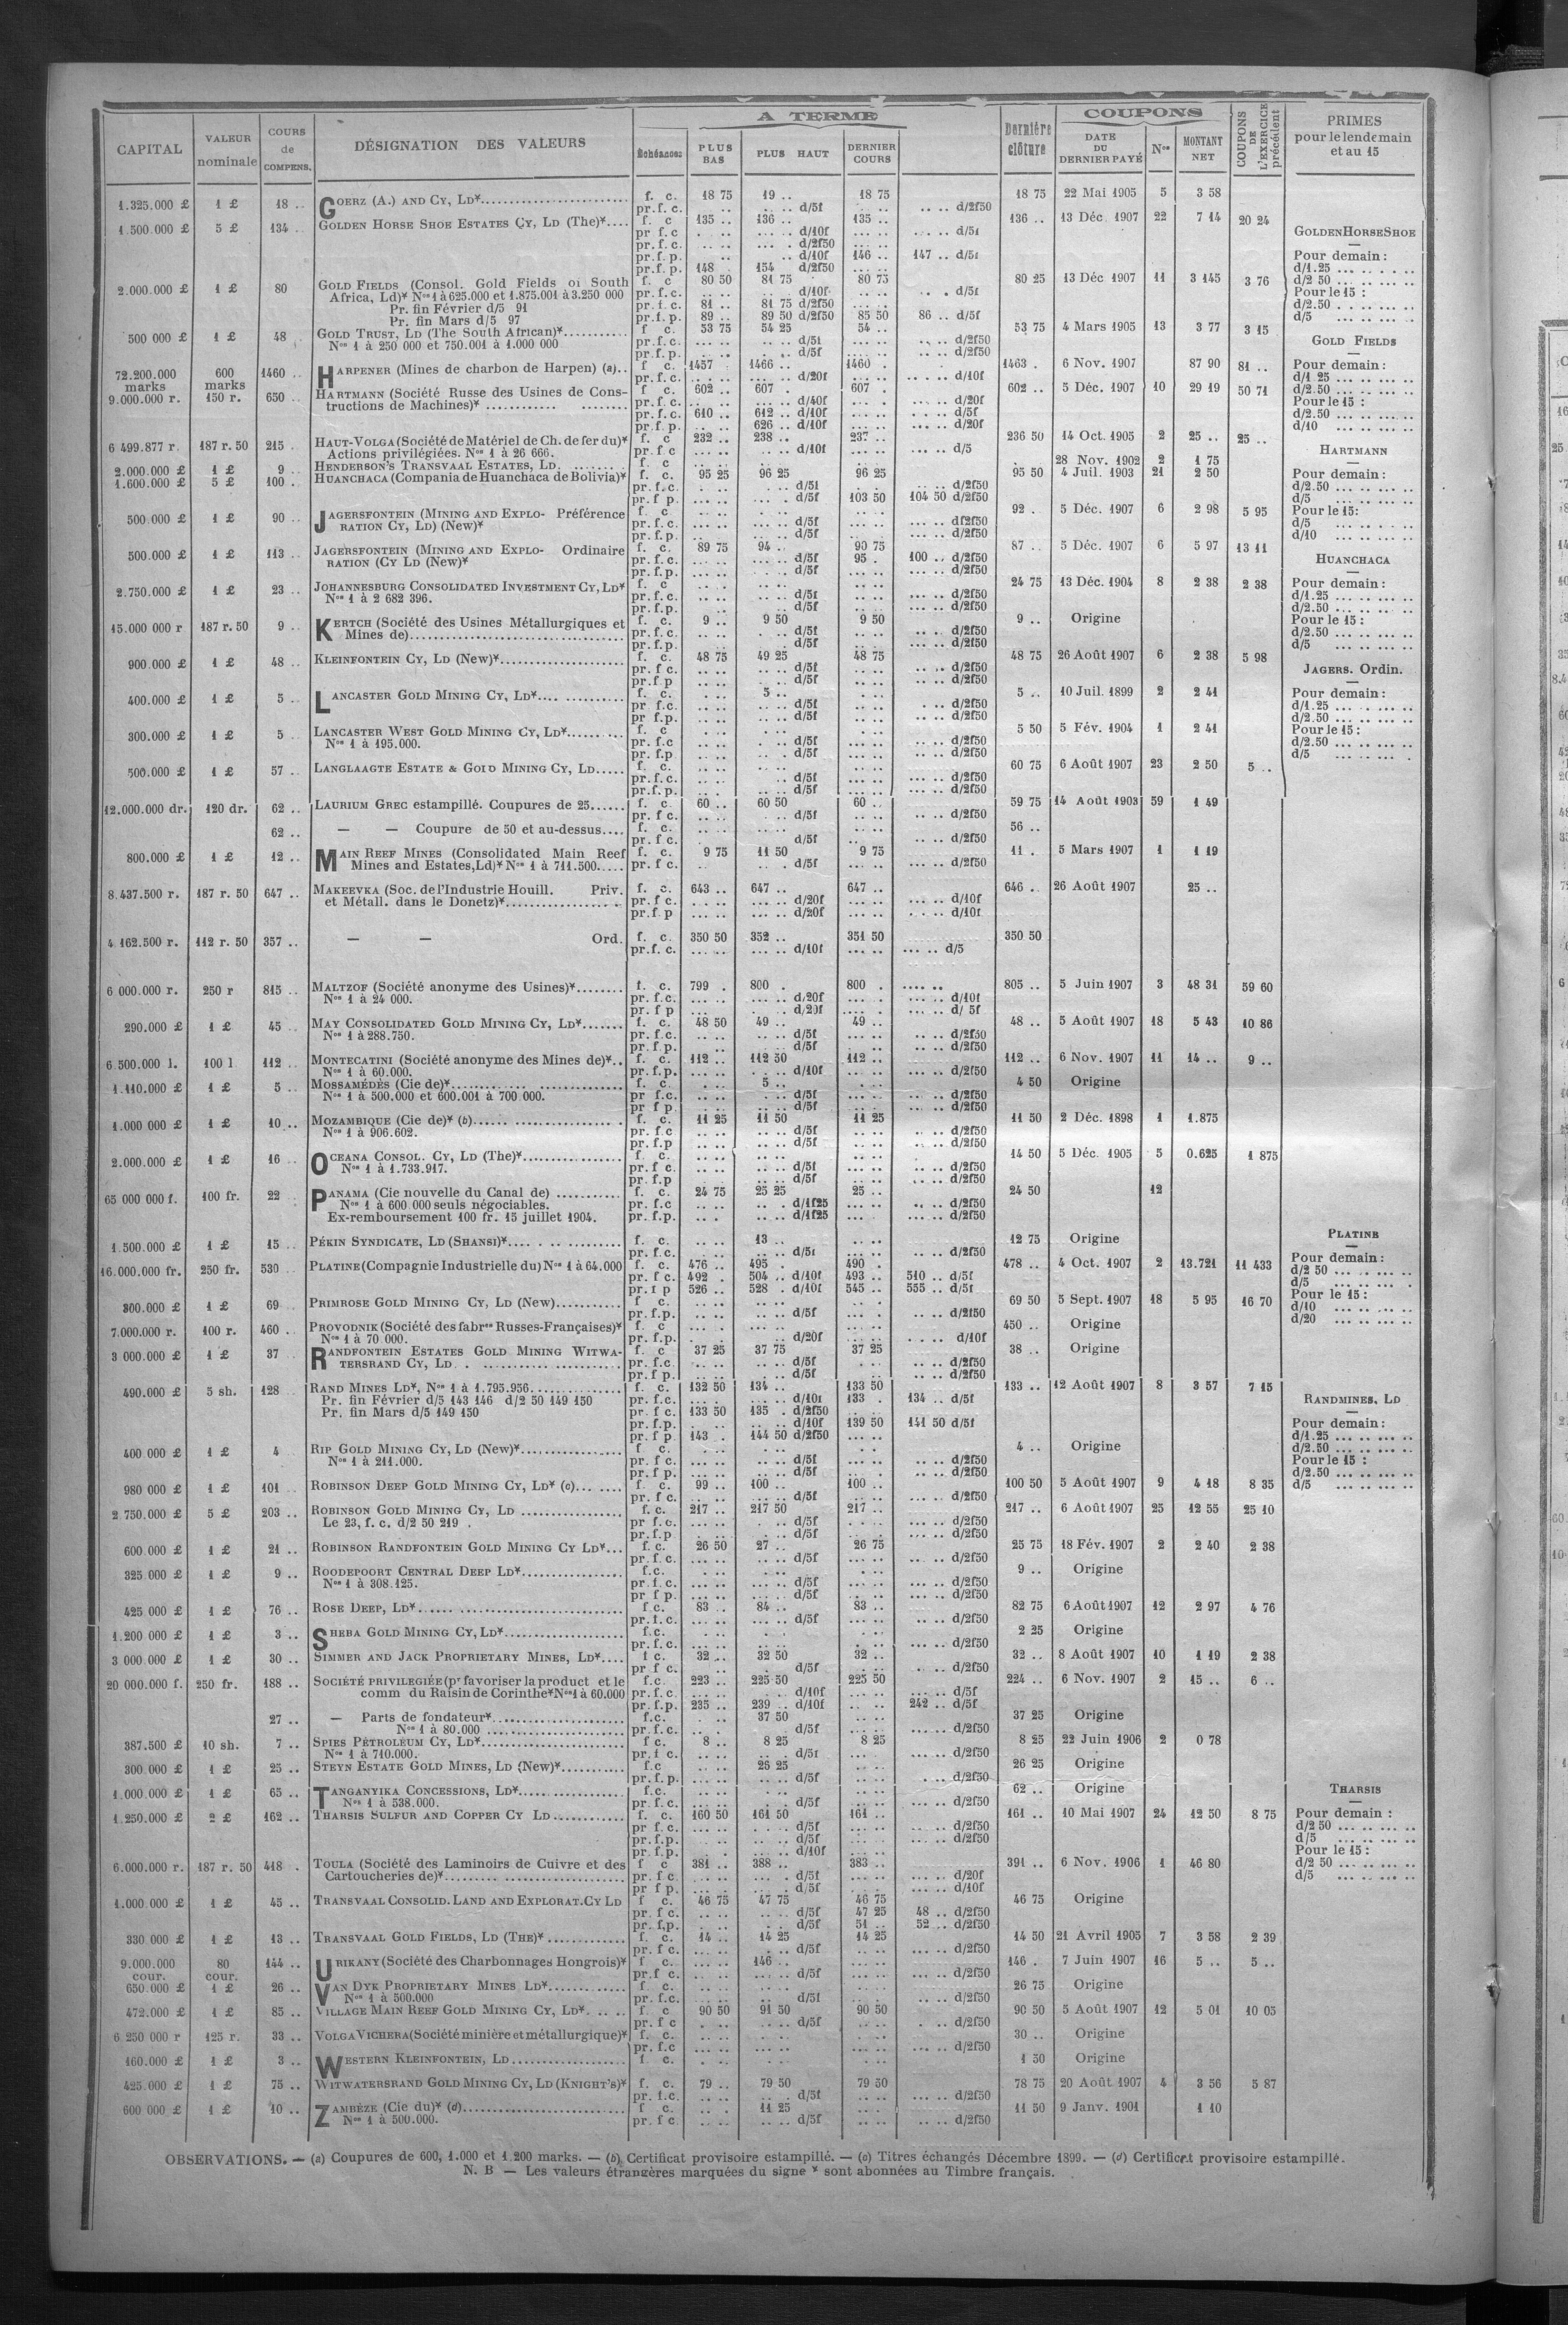 A TERME
COUPONS
CAPITAL
VALEUR nominale
COURS de COMPENS.
DÉSIGNATION DES VALEURS
Échéances
PLUS BAS
PLUS HAUT
DERNIER COURS
Dernière clôture
DATE DU DERNIER PAYÉ
Nos
MONTANT NET
COUPONS DE L'EXERCICE précédent
PRIMES pour le lendemain et au 15
1.325.000 £ 1 £ 18 .. GOERZ (A.) AND CY, LD* f. c. 18 75 19 .. 18 75 18 75 22 Mai 1905 5 3 58
pr. f. c. d/5f d/2f50
1.500.000 £ 5 £ 134 .. GOLDEN HORSE SHOE ESTATES CY, LD (The)* f. c 135 .. 136 .. 135 .. 136 .. 13 Déc. 1907 22 7 14 20 24
pr f. c d/10f d/5f
pr. f. c. d/2f50
pr. f. p. d/10f 146 .. 147 .. d/5f
pr. f. p. 148 154 d/2f50
2.000.000 £ 1 £ 80 GOLD FIELDS (Consol. Gold Fields of South f. c 80 50 81 75 80 75 80 25 13 Déc 1907 11 3 145 3 76
Africa, Ld)* Nos 1 à 625.000 et 1.875.001 à 3.250 000 pr. f. c. d/10f d/5f
Pr. fin Février d/5 91 pr. f. c. 81 .. 81 75 d/2f50
Pr. fin Mars d/5 97 pr. f. p. 89 .. 89 50 d/2f50 85 50 86 .. d/5f
500 000 £ 1 £ 48 GOLD TRUST, LD (The South African)* f c. 53 75 54 25 54 .. 53 75 4 Mars 1905 13 3 77 3 15
Nos 1 à 250 000 et 750.001 à 1.000 000 pr. f. c. d/5f d/2f50
pr. f. p. d/5f d/2f50
72.200.000 marks 600 marks 1460 .. HARPENER (Mines de charbon de Harpen) (a).. f c. 1457 1466 .. 1460 . 1463 . 6 Nov. 1907 87 90 81 ..
pr. f. c. d/20f d/10f
9.000.000 r. 150 r. 650 .. HARTMANN (Société Russe des Usines de Cons- f c. 602 .. 607 . 607 . 602 .. 5 Déc. 1907 10 29 19 50 71
tructions de Machines)* pr. f. c. d/40f d/20f
pr. f. c. 610 .. 612 .. d/10f d/5f
pr. f. p. 626 .. d/10f d/20f
6 499.877 r. 187 r. 50 215 . HAUT-VOLGA (Société de Matériel de Ch. de fer du)* f. c 232 .. 238 .. 237 .. 236 50 14 Oct. 1905 2 25 .. 25 ..
Actions privilégiées. Nos 1 à 26 666. pr. f c d/10f d/5
2.000.000 £ 1 £ 9 .. HENDERSON'S TRANSVAAL ESTATES, LD. f. c 28 Nov. 1902 2 1 75
1.600.000 £ 5 £ 100 . HUANCHACA (Compania de Huanchaca de Bolivia)* f. c. 95 25 96 25 96 25 95 50 4 Juil. 1903 21 2 50
pr. f. c. d/5f d/2f50
pr. f p. d/5f 103 50 104 50 d/2f50
500.000 £ 1 £ 90 .. JAGERSFONTEIN (MINING AND EXPLO- Préférence f. c 92 . 5 Déc. 1907 6 2 98 5 95
RATION CY, LD) (New)* pr. f. c. d/5f df2f50
pr. f. p. d/5f d/2f50
500.000 £ 1 £ 113 .. JAGERSFONTEIN (MINING AND EXPLO- Ordinaire f. c. 89 75 94 .. 90 75 87 .. 5 Déc. 1907 6 5 97 13 11
RATION (CY LD (New)* pr. f. c. d/5f 95 . 100 .. d/2f50
pr. f. p. d/5f d/2f50
2.750.000 £ 1 £ 23 .. JOHANNESBURG CONSOLIDATED INVESTMENT CY, LD* f. c 24 75 13 Déc. 1904 8 2 38 2 38
Nos 1 à 2 682 396. pr. f. c. d/5f d/2f50
pr. f. p. d/5f d/2f50
15.000 000 r 187 r. 50 9 .. KERTCH (Société des Usines Métallurgiques et f. c. 9 .. 9 50 9 50 9 .. Origine
Mines de) pr. f. c. d/5f d/2f50
pr. f. p. d/5f d/2f50
900.000 £ 1 £ 48 .. KLEINFONTEIN CY, LD (New)* f. c. 48 75 49 25 48 75 48 75 26 Août 1907 6 2 38 5 98
pr. f c. d/5f d/2f50
pr. f. p d/5f d/2f50
400.000 £ 1 £ 5 .. LANCASTER GOLD MINING CY, LD* f. c. 5 .. 5 .. 10 Juil. 1899 2 2 41
pr f. c. d/5f d/2f50
pr f. p. d/5f d/2f50
300.000 £ 1 £ 5 LANCASTER WEST GOLD MINING CY, LD* f. c 5 50 5 Fév. 1904 1 2 41
Nos 1 à 195.000. pr. f. c d/5f d/2f50
pr. f. p d/5f d/2f50
500.000 £ 1 £ 57 .. LANGLAAGTE ESTATE & GOLD MINING CY, LD f. c. 60 75 6 Août 1907 23 2 50 5 ..
pr. f. c. d/5f d/2f50
pr. f. p. d/5f d/2f50
12.000.000 dr. 120 dr. 62 .. LAURIUM GREC estampillé. Coupures de 25 f. c. 60 .. 60 50 60 .. 59 75 14 Août 1903 59 1 49
pr. f c. d/5f d/2f50
62 .. — — Coupure de 50 et au-dessus f. c. 56 ..
pr. f c. d/5f d/2f50
800.000 £ 1 £ 12 .. MAIN REEF MINES (Consolidated Main Reef f. c. 9 75 11 50 9 75 11 . 5 Mars 1907 1 1 19
Mines and Estates, Ld)* Nos 1 à 711.500 pr. f c. d/5f d/2f50
8.437.500 r. 187 r. 50 647 .. MAKEEVKA (Soc. de l'Industrie Houill. Priv. f. c. 643 .. 647 .. 647 .. 646 .. 26 Août 1907 25 ..
et Métall. dans le Donetz)* pr. f c. d/20f d/10f
pr. f. p d/20f d/10f
4 162.500 r. 112 r. 50 357 .. — — Ord. f. c. 350 50 352 .. 351 50 350 50
pr. f. c. d/10f d/5
6 000.000 r. 250 r 815 .. MALTZOF (Société anonyme des Usines)* f. c. 799 . 800 . 800 . 805 .. 5 Juin 1907 3 48 31 59 60
Nos 1 à 24 000. pr. f. c. d/20f d/10f
pr. f p d/20f d/ 5f
290.000 £ 1 £ 45 .. MAY CONSOLIDATED GOLD MINING CY, LD* f. c. 48 50 49 .. 49 .. 48 .. 5 Août 1907 18 5 43 10 86
Nos 1 à 288.750. pr. f. c. d/5f d/2f50
pr. f. p. d/5f d/2f50
6.500.000 l. 100 l 112 .. MONTECATINI (Société anonyme des Mines de)* f. c. 112 .. 112 50 112 .. 112 .. 6 Nov. 1907 11 14 .. 9 ..
Nos 1 à 60.000. pr. f. p. d/10f d/2f50
1.110.000 £ 1 £ 5 .. MOSSAMÉDÈS (Cie de)* f. c. 5 .. 4 50 Origine
Nos 1 à 500.000 et 600.001 à 700 000. pr f. c. d/5f d/2f50
pr f p. d/5f d/2f50
1.000 000 £ 1 £ 10 .. MOZAMBIQUE (Cie de)* (b) f. c. 11 25 11 50 11 25 11 50 2 Déc. 1898 1 1.875
Nos 1 à 906.602. pr. f. c d/5f d/2f50
pr. f. p d/5f d/2f50
2.000.000 £ 1 £ 16 OCEANA CONSOL. CY, LD (The)* f. c. 14 50 5 Déc. 1905 5 0.625 1 875
Nos 1 à 1.733.917. pr. f c. d/5f d/2f50
pr. f. p d/5f d/2f50
65 000 000 f. 100 fr. 22 PANAMA (Cie nouvelle du Canal de) f. c. 24 75 25 25 25 .. 24 50 12
Nos 1 à 600 000 seuls négociables. pr. f. c d/1f25 d/2f50
Ex-remboursement 100 fr. 15 juillet 1904. pr. f. p. d/1f25 d/2f50
1.500.000 £ 1 £ 15 .. PÉKIN SYNDICATE, LD (SHANSI)* f. c. 13 .. 12 75 Origine
pr. f. c. d/5f d/2f50
16.000.000 fr. 250 fr. 530 .. PLATINE (Compagnie Industrielle du) Nos 1 à 64.000 f. c. 476 .. 495 . 490 . 478 .. 4 Oct. 1907 2 13.721 11 433
pr. f c. 492 . 504 .. d/10f 493 .. 510 .. d/5f
pr. f p 526 .. 528 . d/10f 545 .. 555 .. d/5f
300.000 £ 1 £ 69 PRIMROSE GOLD MINING CY, LD (New) f c. 69 50 5 Sept. 1907 18 5 95 16 70
pr. f. p. d/5f d/2f50
7.000.000 r. 100 r. 460 .. PROVODNIK (Société des fabres Russes-Françaises)* f. c 450 .. Origine
Nos 1 à 70 000. pr. f. p. d/20f d/10f
3 000.000 £ 1 £ 37 RANDFONTEIN ESTATES GOLD MINING WITWA- f. c 37 25 37 75 37 25 38 .. Origine
TERSRAND CY, LD pr. f. c d/5f d/2f50
pr. f p. d/5f d/2f50
490.000 £ 5 sh. 128 RAND MINES LD*, Nos 1 à 1.795.956 f. c. 132 50 134 .. 133 50 133 .. 12 Août 1907 8 3 57 7 15
Pr. fin Février d/5 143 146 d/2 50 149 150 pr. f. c. d/10f 133 . 134 .. d/5f
Pr. fin Mars d/5 149 150 pr. f c. 133 50 135 . d/2f50
pr. f. p. d/10f 139 50 141 50 d/5f
pr. f p. 143 . 144 50 d/2f50
400 000 £ 1 £ 4 RIP GOLD MINING CY, LD (New)* f c. 4 .. Origine
Nos 1 à 211.000. pr. f c. d/5f d/2f50
pr. f p. d/5f d/2f50
980 000 £ 1 £ 101 ROBINSON DEEP GOLD MINING CY, LD* (c) f. c. 99 .. 100 .. 100 .. 100 50 5 Août 1907 9 4 18 8 35
pr. f c. d/5f d/2f50
2 750.000 £ 5 £ 203 .. ROBINSON GOLD MINING CY, LD f. c. 217 .. 217 50 217 .. 217 .. 6 Août 1907 25 12 55 25 10
Le 23, f. c. d/2 50 219 . pr f. c. d/5f d/2f50
pr. f. p d/5f d/2f50
600.000 £ 1 £ 21 .. ROBINSON RANDFONTEIN GOLD MINING CY LD* f. c. 26 50 27 .. 26 75 25 75 18 Fév. 1907 2 2 40 2 38
pr. f. c. d/5f d/2f50
325.000 £ 1 £ 9 .. ROODEPOORT CENTRAL DEEP LD* f. c. 9 .. Origine
Nos 1 à 308.125. pr. f. c. d/5f d/2f50
pr f p. d/5f d/2f50
425 000 £ 1 £ 76 .. ROSE DEEP, LD* f. c. 83 .. 84 .. 83 .. 82 75 6 Août 1907 12 2 97 4 76
pr. f. c. d/5f d/2f50
1.200 000 £ 1 £ 3 .. SHEBA GOLD MINING CY, LD* f. c. 2 25 Origine
pr. f. c. d/2f50
3 000 000 £ 1 £ 30 .. SIMMER AND JACK PROPRIETARY MINES, LD* f c. 32 .. 32 50 32 .. 32 .. 8 Août 1907 10 1 19 2 38
pr f c. d/5f d/2f50
20 000.000 f. 250 fr. 188 .. SOCIÉTÉ PRIVILEGIÉE (pr favoriser la product et le f. c. 223 .. 225 50 225 50 224 .. 6 Nov. 1907 2 15 .. 6 ..
comm du Raisin de Corinthe* Nos 1 à 60.000 pr. f. c. d/10f d/5f
pr. f. p. 235 .. 239 .. d/10f 242 .. d/5f
27 .. — Parts de fondateur* f. c. 37 50 37 25 Origine
Nos 1 à 80.000 pr. f. c. d/5f d/2f50
387.500 £ 10 sh. 7 .. SPIES PÉTROLEUM CY, LD* f c. 8 .. 8 25 8 25 8 25 22 Juin 1906 2 0 78
Nos 1 à 710.000. pr. f c. d/5f d/2f50
300.000 £ 1 £ 25 .. STEYN ESTATE GOLD MINES, LD (New)* f. c 26 25 26 25 Origine
pr. f. p. d/5f d/2f50
1.000.000 £ 1 £ 65 .. TANGANYIKA CONCESSIONS, LD* f. c. 62 .. Origine
Nos 1 à 538.000. pr. f. c. d/5f d/2f50
1.250.000 £ 2 £ 162 .. THARSIS SULFUR AND COPPER CY LD f. c. 160 50 161 50 161 .. 161 .. 10 Mai 1907 24 12 50 8 75
pr f. c. d/5f d/2f50
pr. f. p. d/5f d/2f50
pr. f. p. d/10f
6.000.000 r. 187 r. 50 418 . TOULA (Société des Laminoirs de Cuivre et des f c 381 .. 388 .. 383 .. 391 .. 6 Nov. 1906 1 46 80
Cartoucheries de)* pr. f c d/5f d/20f
pr f p. d/5f d/10f
1.000.000 £ 1 £ 45 .. TRANSVAAL CONSOLID. LAND AND EXPLORAT. CY LD f c. 46 75 47 75 46 75 46 75 Origine
pr. f c. d/5f 47 25 48 .. d/2f50
pr. f. p. d/5f 51 .. 52 .. d/2f50
330.000 £ 1 £ 13 .. TRANSVAAL GOLD FIELDS, LD (THE)* f. c. 14 .. 14 25 14 25 14 50 21 Avril 1905 7 3 58 2 39
pr. f c. d/5f d/2f50
9.000.000 cour. 80 cour. 144 .. URIKANY (Société des Charbonnages Hongrois)* f c. 146 .. 146 . 7 Juin 1907 16 5 .. 5 ..
pr. f c. d/5f d/2f50
650.000 £ 1 £ 26 .. VAN DYK PROPRIETARY MINES LD* f. c. 26 75 Origine
Nos 1 à 500.000 pr. f. c. d/5f d/2f50
472.000 £ 1 £ 85 .. VILLAGE MAIN REEF GOLD MINING CY, LD* f. c 90 50 91 50 90 50 90 50 5 Août 1907 12 5 01 10 05
pr. f c d/5f d/2f50
6 250 000 r 125 r. 33 .. VOLGA VICHERA (Société minière et métallurgique)* f. c. 30 .. Origine
pr. f. c d/2f50
160.000 £ 1 £ 3 .. WESTERN KLEINFONTEIN, LD f c. 1 50 Origine
425.000 £ 1 £ 75 .. WITWATERSRAND GOLD MINING CY, LD (KNIGHT'S)* f. c. 79 .. 79 50 79 50 78 75 20 Août 1907 4 3 56 5 87
pr. f. c. d/5f d/2f50
600 000 £ 1 £ 10 .. ZAMBÈZE (Cie du)* (d) f c. 11 25 11 50 9 Janv. 1901 1 10
Nos 1 à 500.000. pr. f c d/5f d/2f50
GOLDENHORSESHOE
Pour demain :
d/1.25
d/2 50
Pour le 15 :
d/2.50
d/5
GOLD FIELDS
Pour demain :
d/1 25
d/2.50
Pour le 15 :
d/2.50
d/10
HARTMANN
Pour demain :
d/2.50
d/5
Pour le 15:
d/5
d/10
HUANCHACA
Pour demain :
d/1.25
d/2.50
Pour le 15 :
d/2.50
d/5
JAGERS. Ordin.
Pour demain :
d/1.25
d/2.50
Pour le 15 :
d/2.50
d/5
PLATINE
Pour demain :
d/2 50
d/5
Pour le 15 :
d/10
d/20
RANDMINES, LD
Pour demain :
d/1.25
d/2.50
Pour le 15 :
d/2.50
d/5
THARSIS
Pour demain :
d/2 50
d/5
Pour le 15 :
d/2 50
d/5
OBSERVATIONS. — (a) Coupures de 600, 1.000 et 1.200 marks. — (b) Certificat provisoire estampillé. — (c) Titres échangés Décembre 1899. — (d) Certificat provisoire estampillé.
N. B — Les valeurs étrangères marquées du signe * sont abonnées au Timbre français.